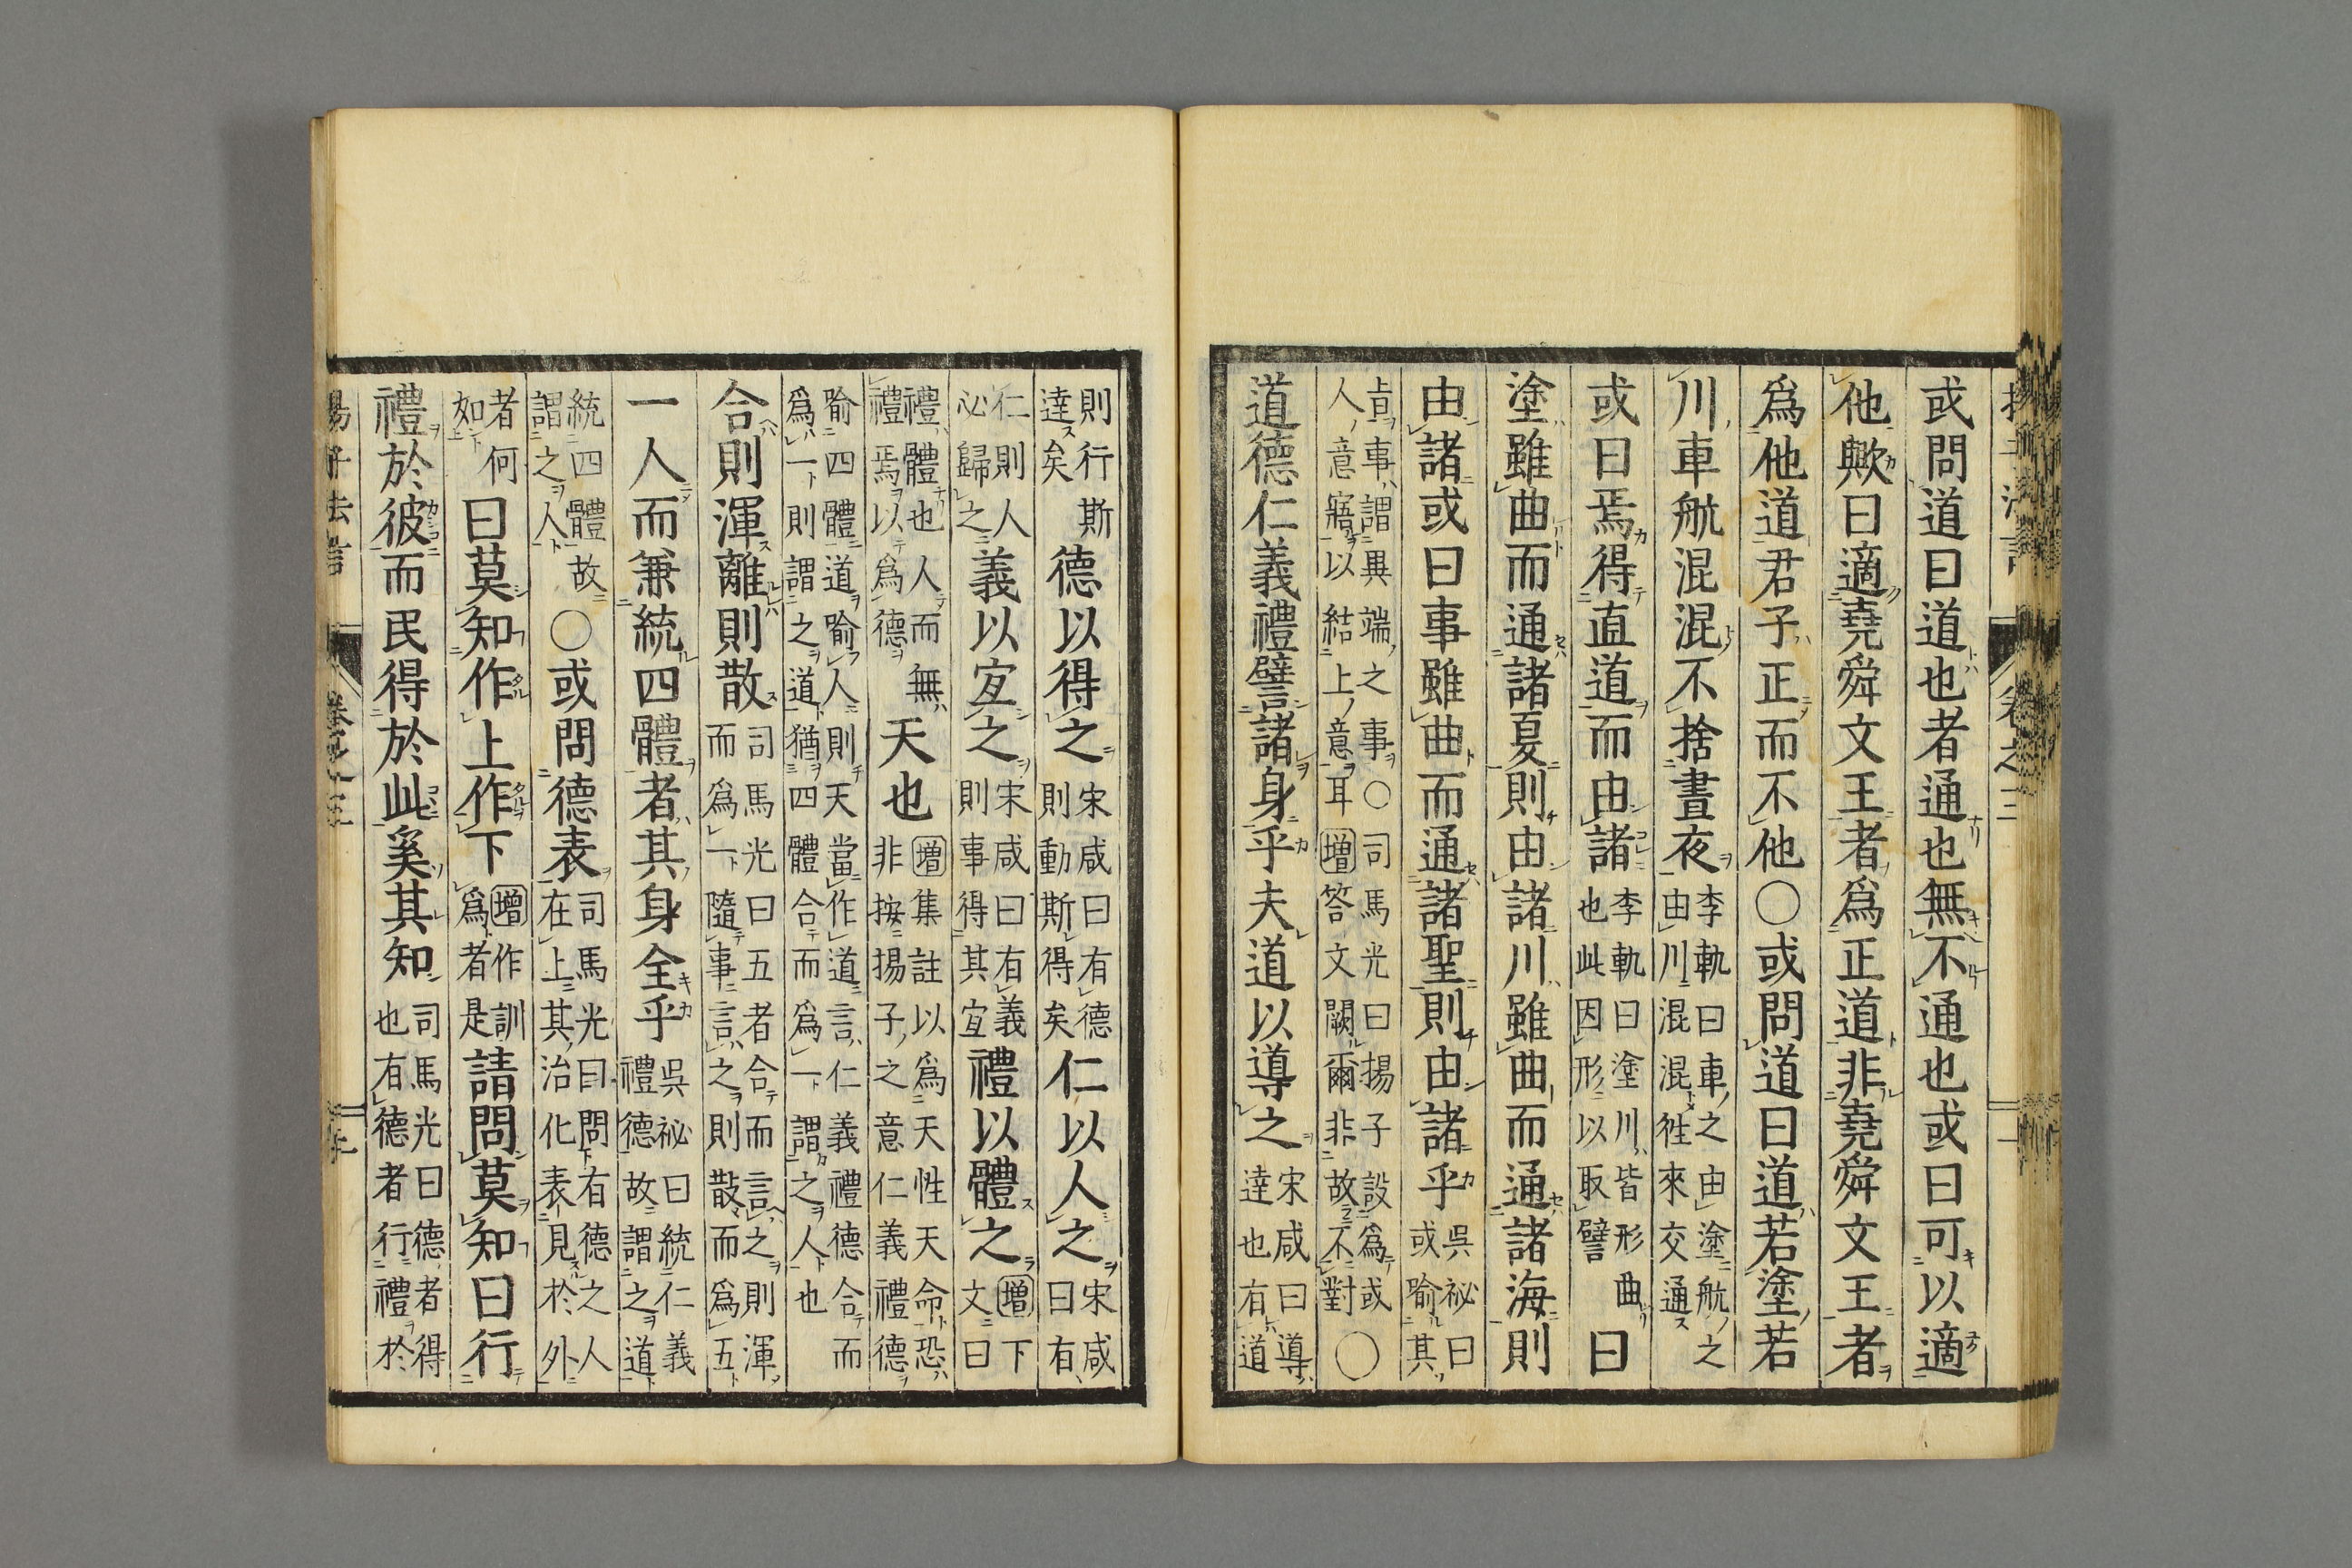 卷之三
或問道曰道也者通也無不通也或曰可以適
他歟曰適堯舜文王者爲正道非堯舜文王者
爲他道君子正而不他〇或問道曰道若塗若
川車航混混不捨晝夜李軌曰車之由塗航之由川混混徃來交通
或曰焉得直道而由諸李軌曰塗川皆形曲也此因形以取譬曰
塗雖曲而通諸夏則由諸川雖曲而通諸海則
由諸或曰事雖曲而通諸聖則由諸乎吳祕曰或喻其
㫖事謂異端之事〇司馬光曰揚子設爲或人意寤以結上意耳增答文闕爾非故不對〇
道德仁義禮譬諸身乎夫道以導之宋咸曰導達也有道
則行斯達矣德以得之宋咸曰有德則動斯得矣仁以人之宋咸曰有
仁則人必歸之義以宜之宋咸曰有義則事得其宜禮以體之增下文曰
禮體也人而無禮焉以爲德天也增集註以爲天性天命恐非按揚子之意仁義禮德
喻四體道喻人則天當作道言仁義禮德合而爲一則謂之道猶四體合而爲一謂之人也
合則渾離則散司馬光曰五者合而言之則渾而爲一隨事言之則散而爲五
一人而兼統四體者其身全乎吳祕曰統仁義禮德故謂之道
統四體故謂之人〇或問德表司馬光曰問有德之人在上其治化表見於外
者何如曰莫知作上作下增作訓爲者是請問莫知曰行
禮於彼而民得於此奚其知司馬光曰德者得也有德者行禮於
揚子法言 卷之三